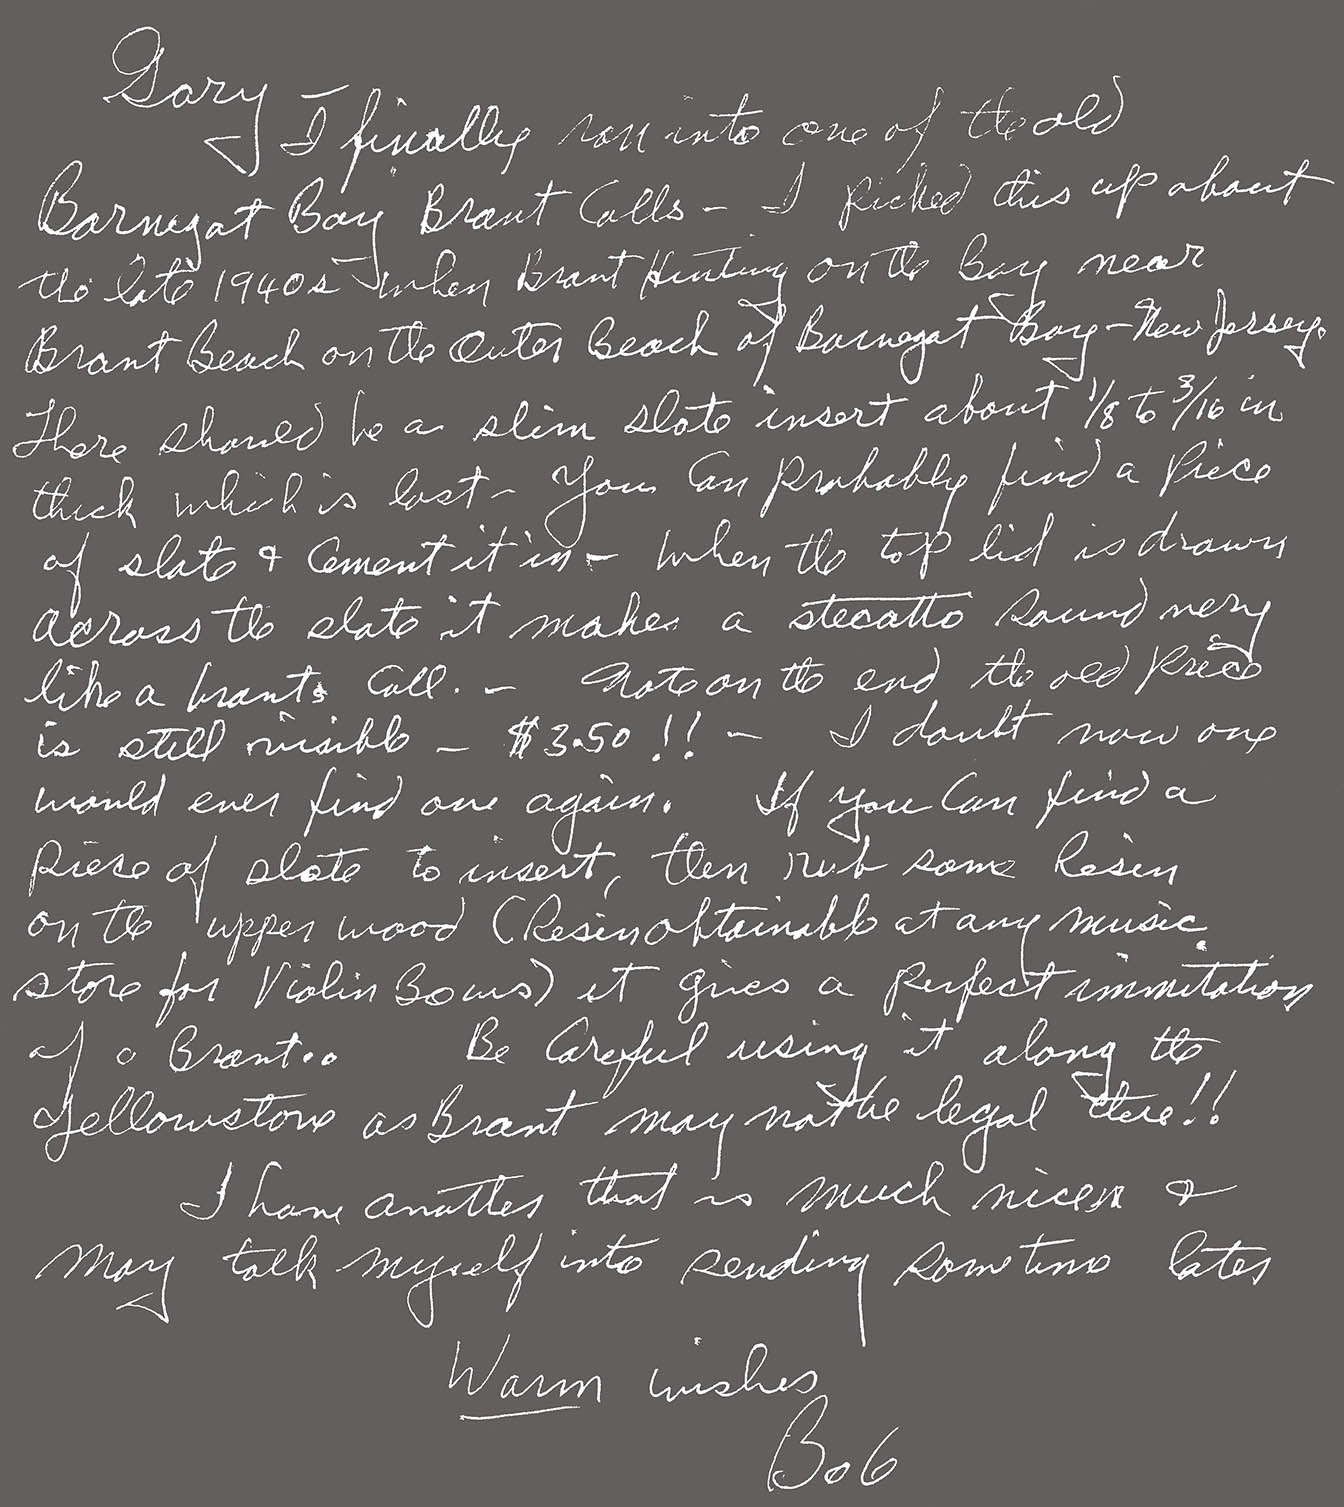 Gary
I finally ran into one of the old
Barnegat Bay Brant Calls - I picked this up about
the late 1940s when Brant Hunting on the Bay near
Brant Beach on the Outer Beach of Barnegat Bay - New Jersey.
There should be a slim slate insert about 1/8 to 3/16 in
thick which is lost - You Can probably find a piece
of slate & Cement it in - When the top lid is drawn
across the slate it makes a stecatto sound very
like a brants Call. - Note on the end the old price
is still visible - $3.50 !! - I doubt now one
would ever find one again. If you Can find a
piece of slate to insert, then rub some Resin
on the upper wood (Resin obtainable at any music
store for Violin Bows) it gives a perfect immitation
of a Brant..   Be Careful using it along the
Yellowstone as Brant may not be legal there!!
I have another that is much nicer &
May talk myself into sending sometime later
Warm wishes
Bob